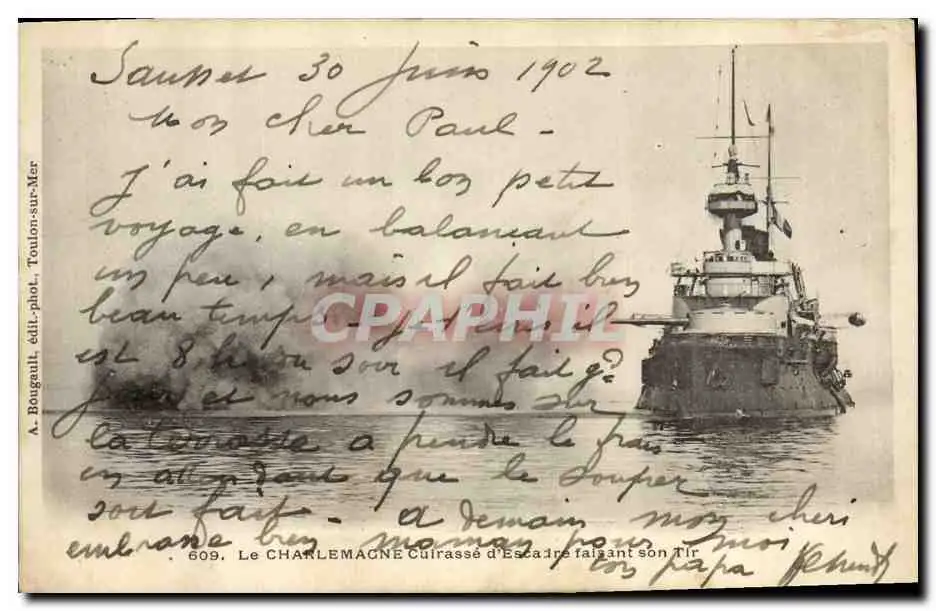 Sausset 30 Juin 1902
Mon cher Paul -
j'ai fait un bon petit
voyage, en balancant
un peu, mais il fait bien
beau temps - Je t'ecris il
est 8 h du soir il fait gd
jour et nous sommes sur
la terrasse a prendre le frais
en attendant que le souper
soit fait - a demain mon cheri
embrasse bien maman pour moi
ton papa
CPAPHIL
A. Bougault, édit.-phot., Toulon-sur-Mer
609. Le CHARLEMAGNE Cuirassé d'Escadre faisant son Tir